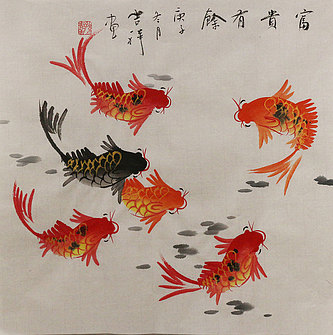 富貴有餘
庚子
冬月
吉祥
畫